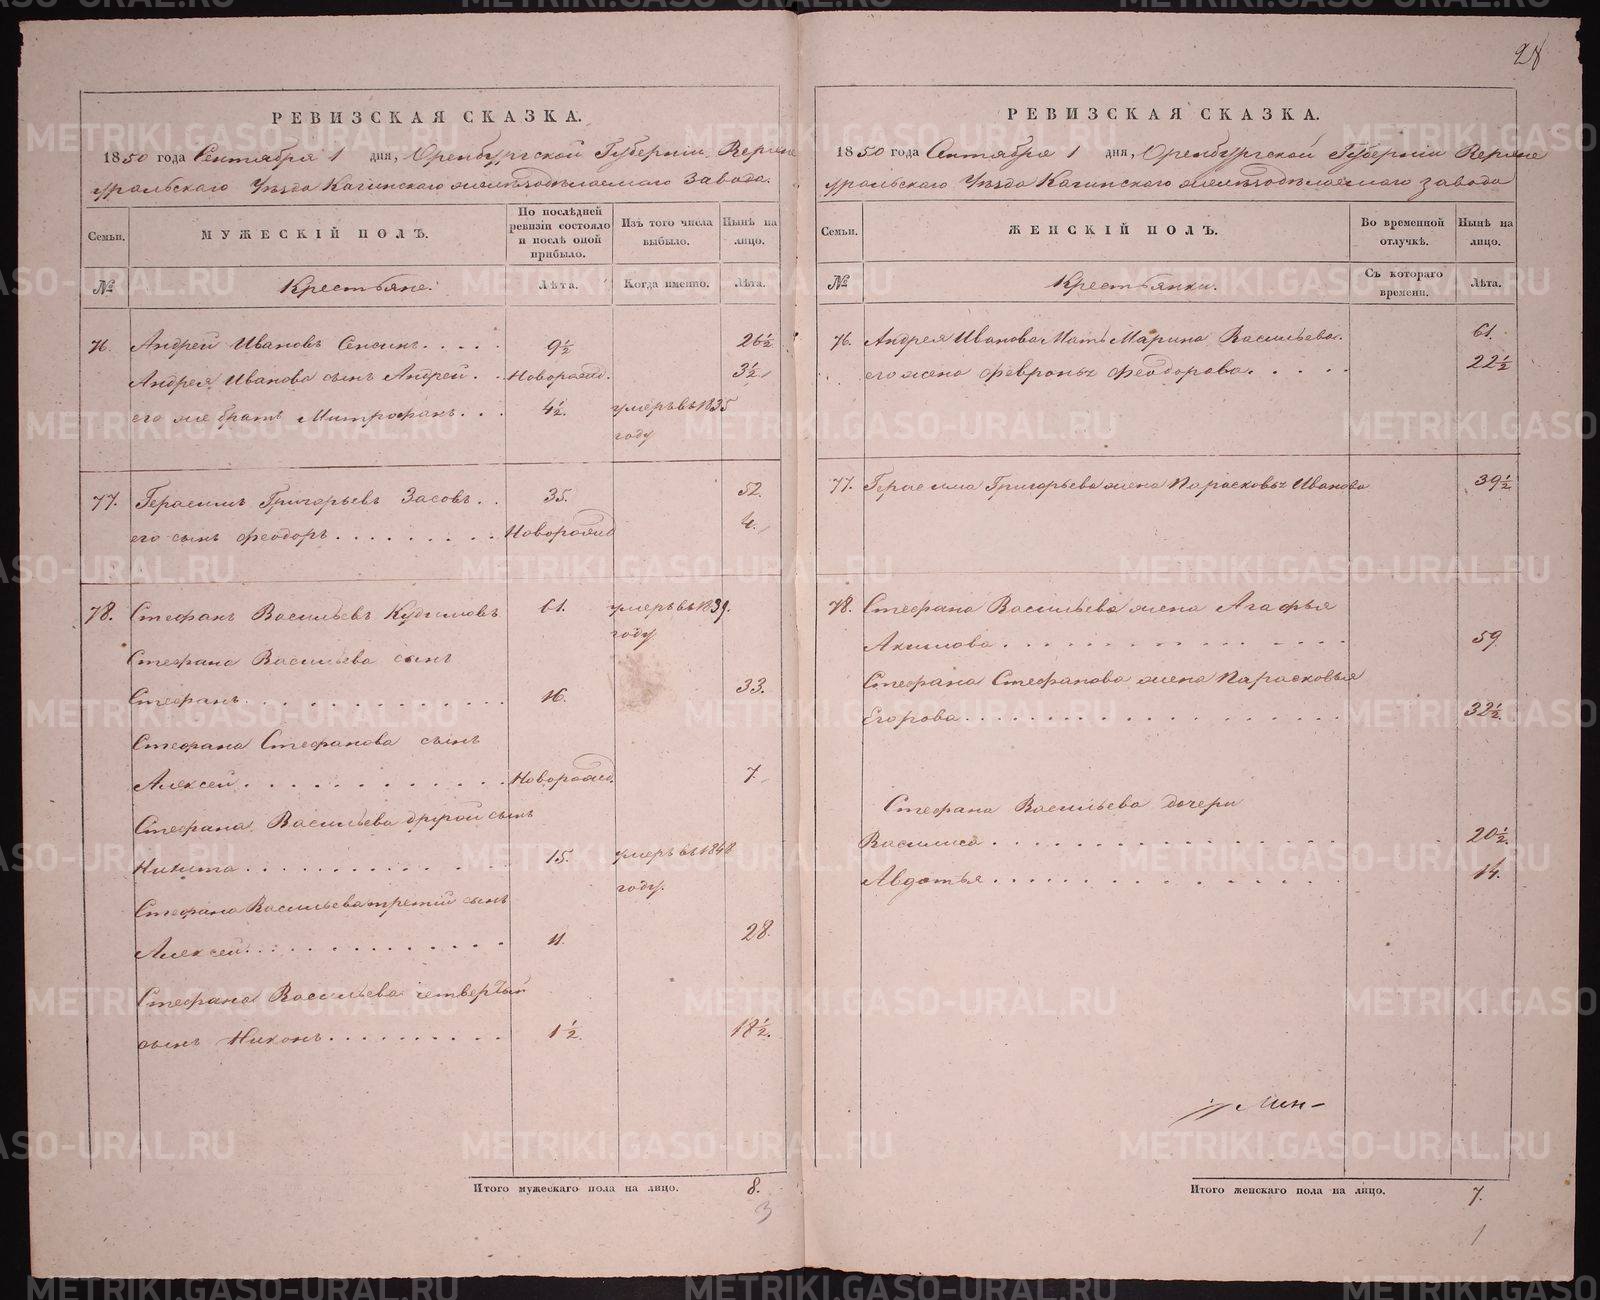 28
РЕВИЗСКАЯ СКАЗКА.
1850 года Сентября 1 дня, Оренбургской Губерніи Верхне
уральскаго Уѣзда Кагинскаго желѣзодѣлаемаго Завода.
Семьи. МУЖЕСКІЙ ПОЛЪ. По послѣдней ревизіи состояло и послѣ оной прибыло. Изъ того числа выбыло. Нынѣ на лицо.
№ Крестьяне. Лѣта. Когда именно. Лѣта.
76. Андрей Ивановъ Сенсинъ..... 9½ 26½
Андрея Иванова сынъ Андрей.. Новорожд. 3½
его же братъ Митрофанъ... 4½. умеръ въ 1835
году
77. Герасимъ Григорьевъ Засовъ.. 35. 52.
его сынъ Феодоръ......... Новорожд 4.
78. Стефанъ Васильевъ Кудимовъ 61. умеръ въ 1839.
году
Стефана Васильева сынъ
Стефанъ............. 16. 33.
Стефана Стефанова сынъ
Алексей............ Новорожд. 7.
Стефана Васильева другой сынъ
Никита............ 15. умеръ въ 1848
году.
Стефана Васильева третій сынъ
Алексей............ 11. 28.
Стефана Васильева четвертый
сынъ Никонъ......... 1½. 18½.
Итого мужескаго пола на лицо. 8.
3
РЕВИЗСКАЯ СКАЗКА.
1850 года Сентября 1 дня, Оренбургской Губерніи Верхне
уральскаго Уѣзда Кагинскаго желѣзодѣлаемаго завода
Семьи. ЖЕНСКІЙ ПОЛЪ. Во временной отлучкѣ. Нынѣ на лицо.
№ Крестьянки. Съ котораго времени. Лѣта.
76. Андрея Иванова Мать Марина Васильева. 61.
его жена Февронья Феодорова..... 22½
77. Герасима Григорьева жена Парасковья Иванова 39½
78. Стефана Васильева жена Агафья
Акимова............. 59
Стефана Стефанова жена Парасковья
Егорова............... 32½
Стефана Васильева дочери
Василиса............. 20½.
Авдотья............. 14.
Итого женскаго пола на лицо. 7.
1
METRIKI.GASO-URAL.RU